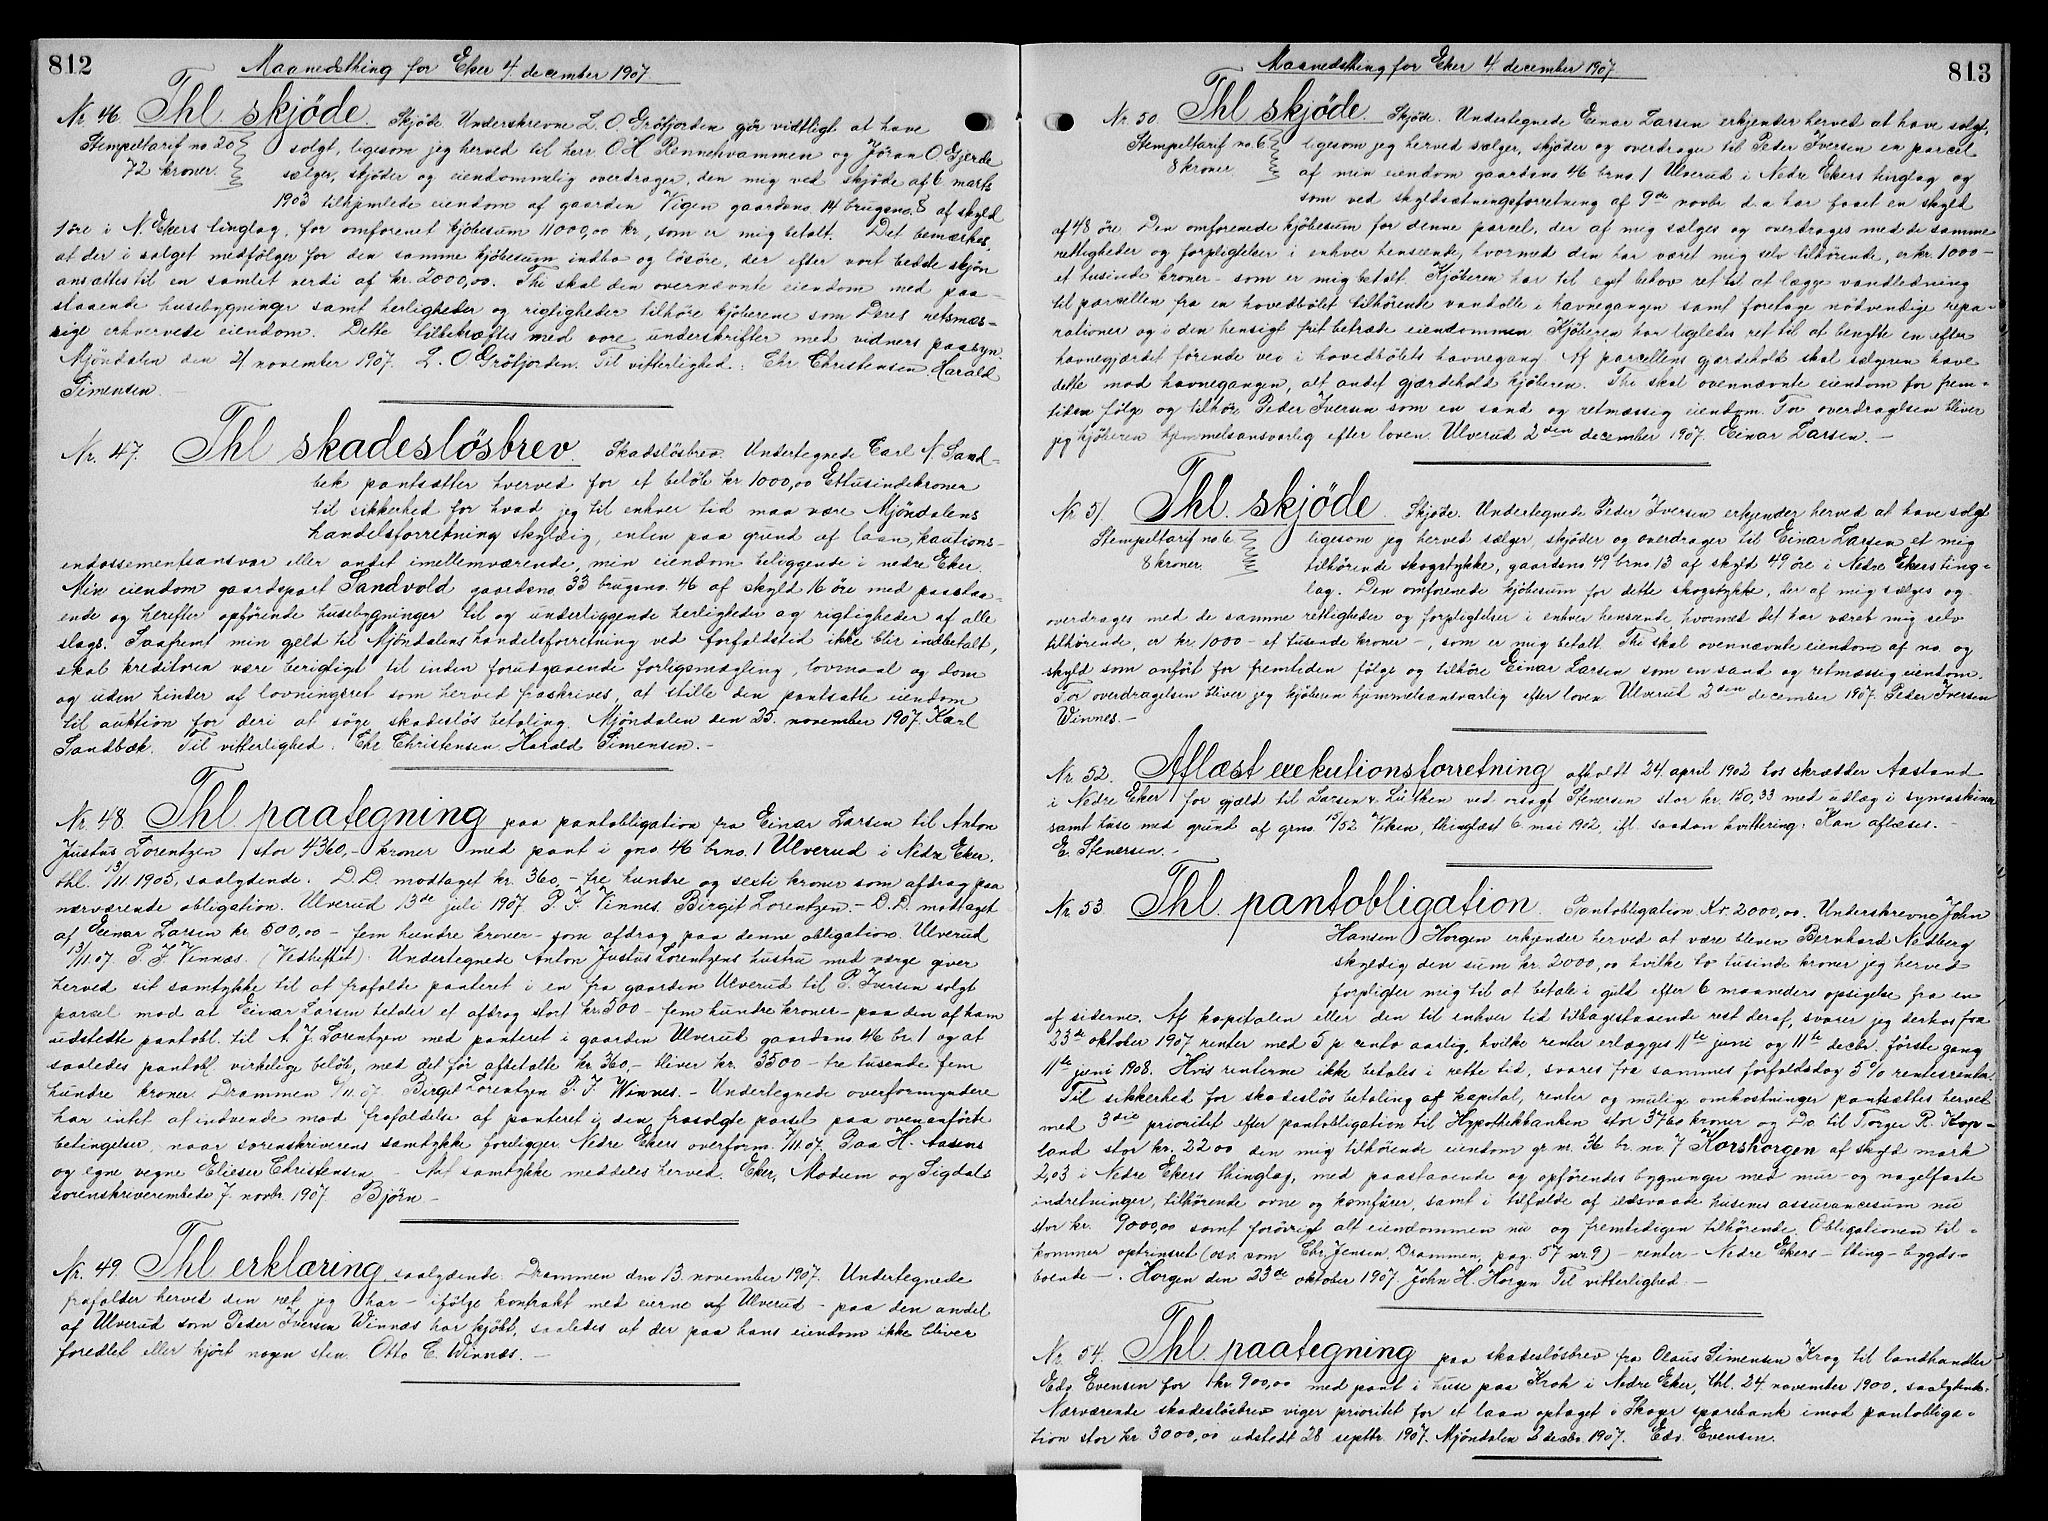 812
Maanedsthing for Eker 4 december 1907
Nr. 46. Thl skjöde. Skjöde. Underskrevne L. O. Gröfjorden gjör vidtligt at have
Stempeltarif no 20 solgt, ligesom jeg herved til herr O. H. Rennehvammen og Jöran O Gjerde
72 kroner. sælger, skjöder og eiendommelig overdrager, den mig ved skjöde af 6 marts
1903 tilhjemlede eiendom af gaarden Vigen gaardsno. 14 brugsno. 8 af skyld
1 öre i N. Ekers tinglag, for omforenet kjöbesum 11000,00 kr., som er mig betalt. Det bemærkes,
at der i salget medfölger for den samme kjöbesum indbo og lösöre, der efter vort bedste skjön
ansættes til en samlet verdi af kr. 2000,00. Thi skal den overnævnte eiendom med paa-
staaende husebygninger samt herligheder og rigtigheder tilhöre kjöberene som Deres retsmæs-
sige erhvervede eiendom. Dette tilbekræftes med vore underskrifter med vidners paasyn.
Mjöndalen den 21 november 1907. L. O Gröfjorden. Til vitterlighed: Chr Christensen. Harald
Simensen.
Nr. 47. Thl skadeslösbrev. Skadslösbrev. Undertegnede Carl N Sand-
bek pantsætter hverved for et belöb kr 1000,00 Ettusindekroner
til sikkerhed for hvad jeg til enhver tid maa være Mjöndalens
handelsforretning skyldig, enten paa grund af laan, kautions-
endossementsansvar eller andet imellemværende, min eiendom beliggende i nedre Eker.
Min eiendom gaardspart Sandvold gaardsno. 33 brugsno. 46 af skyld 16 öre med paastaa-
ende og herefter opförende husebygninger til og underliggende herligheder og rigtigheder af alle
slags. Saafremt min gjeld til Mjöndalens handelsforretning ved forfaldstid ikke blir indbetalt,
skal kreditoren være berigtigt til inden forudgaaende forligsmægling, lovmaal og dom
og uden hinder af lovningsret som herved fraskrives, at stille den pantsatte eiendom
til auktion for deri at söge skadeslös betaling. Mjöndalen den 25. november 1907. Karl
Sandbæk. Til vitterlighed. Chr Christensen. Harald Simensen.-
Nr. 48. Thl paategning paa pantobligation fra Einar Larsen til Anton
Justus Lorentzen stor 4360,- kroner med pant i gno. 46 brno. 1 Ulverud i Nedre Eker.
thl. 13/11. 1905, saalydende: D. D. modtaget kr. 360,- tre hundre og sexti kroner som afdrag paa
nærværende obligation. Ulverud 13de juli 1907 P. J. Vinnes. Birgit Lorentzen.- D. D. modtaget
af Einar Larsen kr. 500,00 - fem hundre kroner - som afdrag paa denne obligation. Ulverud
13/11.07. P. J. Vinnæs. (Vedheftet): Undertegnede Anton Justus Lorentzens hustru med værge giver
herved sit samtykke til at frafalde panteret i en fra gaarden Ulverud til P. Iversen solgt
parcel mod at Einar Larsen betaler et afdrag stort kr. 500 - fem hundre kroner - paa den af ham
udstedte pantobl. til A. J. Lorentzen med panteret i gaarden Ulverud gaardsno. 46 br. 1 og at
saaledes pantobl. virkelige belöb, med det för afbetalte kr 360,- bliver kr. 3500 - tre tusende fem
hundre kroner. Drammen 6/11. 07. Birgit Lorentzen P. J. Winnes. - Undertegnede overformyndere
har intet at indvende mod frafaldelse af panteret i den frasolgte parsel paa ovenanförte
betingelser, naar sorenskriverens samtykke foreligger. Nedre Ekers overform. 7/11.07. Paa H. Aasens
og egne vegne Elieser Christensen - Mit samtykke meddeles herved. Eker, Modum og Sigdals
sorenskriverembede 7. novbr. 1907. Björn -
Nr. 49 Thl erklæring saalydende: Drammen den 13. november 1907. Undertegnede
frafalder herved den ret jeg har - ifölge kontrakt med eierne af Ulverud - paa den andel
af Ulverud som Peder Iversen Winnæs har kjöbt, saaledes at der paa hans eiendom ikke bliver
foredlet eller kjört nogen sten. Otto C. Winnæs. -
813
Maanedsthing for Eker 4 december 1907
Nr. 50. Thl skjöde. Skjöde. Undertegnede Einar Larsen erkjender herved at have solgt,
Stempeltarif no 6 ligesom jeg herved sælger, skjöder og overdrager til Peder Iversen en parcel
8 kroner af min eiendom gaardsno 46 brno. 1 Ulverud i Nedre Ekers tinglag og
som ved skyldsætningsforretning af 9de novbr d. a har faaet en skyld
af 48 öre. Den omforenede kjöbesum for denne parcel, der af mig sælges og overdrages med de samme
rettigheder og forpligtelser i enhver henseende, hvormed den har været mig selv tilhörende, er kr. 1000 -
et tusinde kroner - som er mig betalt. Kjöberen har til eget behov ret til at lægge vandledning
til parcellen fra en hovedbölet tilhörende vandolle i havnegangen samt foretage nödvendige repa-
rationer og i den hensigt frit betræde eiendommen. Kjöberen har ligeledes ret til at benytte en efter
havnegjærdet förende vei i hovedbölets havnegang. Af parcellens gjærdehold skal sælgeren have
dette mod havnegangen, alt andet gjærdehold kjöberen. Thi skal ovennævnte eiendom for frem-
tiden fölge og tilhöre Peder Iversen som en sand og retmæssig eiendom. For overdragelsen bliver
jeg kjöberen hjemmelsansvarlig efter loven. Ulverud 2den december 1907. Einar Larsen. -
Nr 51. Thl. skjöde. Skjöde. Undertegnede Peder Iversen erkjender herved at have solgt
Stempeltarif no 6. ligesom jeg herved sælger, skjöder og overdrager til Einar Larsen et mig
8 kroner. tilhörende skogstykke, gaardsno 49 brno 13 af skyld 49 öre i Nedre Ekers ting-
lag. Den omforenede kjöbesum for dette skogstykke, der af mig sælges og
overdrages med de samme rettigheder og forpligtelser i enhver henseende, hvormed det har været mig selv
tilhörende, er kr 1000 - et tusende kroner -, som er mig betalt. Thi skal ovennævnte eiendom af no. og
skyld som anfört for fremtiden fölge og tilhöre Einar Larsen som en sand og retmæssig eiendom.
For overdragelsen bliver jeg kjöberen hjemmelsansvarlig efter loven Ulverud 2den december 1907. Peder Iversen
Vinnes. -
Nr. 52. Aflæst exekutionsforretning afholdt 24. april 1902 hos skrædder Aasland
i Nedre Eker for gjæld til Larsen & Lütken ved orsagf. Stenersen stor kr. 150,33 med udlæg i symaskiner
samt huse med grund af grno. 15/52 Viken, thinglæst 6. mai 1902, ifl. saadan kvittering: Kan aflæses. -
E. Stenersen. -
Nr. 53. Thl. pantobligation. Pantobligation Kr. 2000,00. Underskrevne John
Hansen Horgen erkjender herved at være bleven Bernhard Nedberg
skyldig den sum kr. 2000,00 hvilke to tusinde kroner jeg herved
forpligter mig til at betale i guld efter 6 maaneders opsigelse fra en
af siderne. Af kapitalen eller den til enhver tid tilbagestaaende rest deraf, svarer jeg derhos fra
23de oktober 1907 renter med 5 p cento aarlig, hvilke renter erlægges 11te juni og 11te decbr. förste gang
11te juni 1908. Hvis renterne ikke betales i rette tid, svares fra sammes forfaldsdag 5% rentesrenter.
Til sikkerhed for skadeslös betaling af kapital, renter og mulige omkostninger pantsættes herved
med 3die prioritet efter pantobligation til Hypothekbanken stor 3760 kroner og Do. til Torger R. Hop-
land stor kr. 2200 den mig tilhörende eiendom gr. nr. 36 br. no. 7 Korshorgen af skyld mark
2,03 i Nedre Ekers thinglag, med paastaaende og opförendes bygninger med mur- og nagelfaste
indretninger, tilhörende ovne og komfurer, samt i tilfælde af ildsvaade husenes assurancesum nu
stor kr. 9000,00 samt forövrigt alt eiendommen nu og fremtidigen tilhörende. Obligationen til-
kommer optrinsret (osv. som Chr. Jensen, Drammen, pag. 57 nr 9) - renter - Nedre Ekers - thing - bygds-
boende - . Horgen den 23de oktober 1907. John H. Horgen Til vitterlighed: -
Nr. 54. Thl. paategning paa skadeslösbrev fra Olaus Simensen Krog til landhandler
Edv. Evensen for kr. 900,00 med pant i huse paa Krok i Nedre Eker, thl. 24. november 1900, saalydende.
Nærværende skadeslösbrev viger prioritet for et laan optaget i Skoger sparebank imod pantobliga-
tion stor kr. 3000,00 udstedt 28 septbr. 1907. Mjöndalen 2 decbr. 1907. Edv. Evensen.